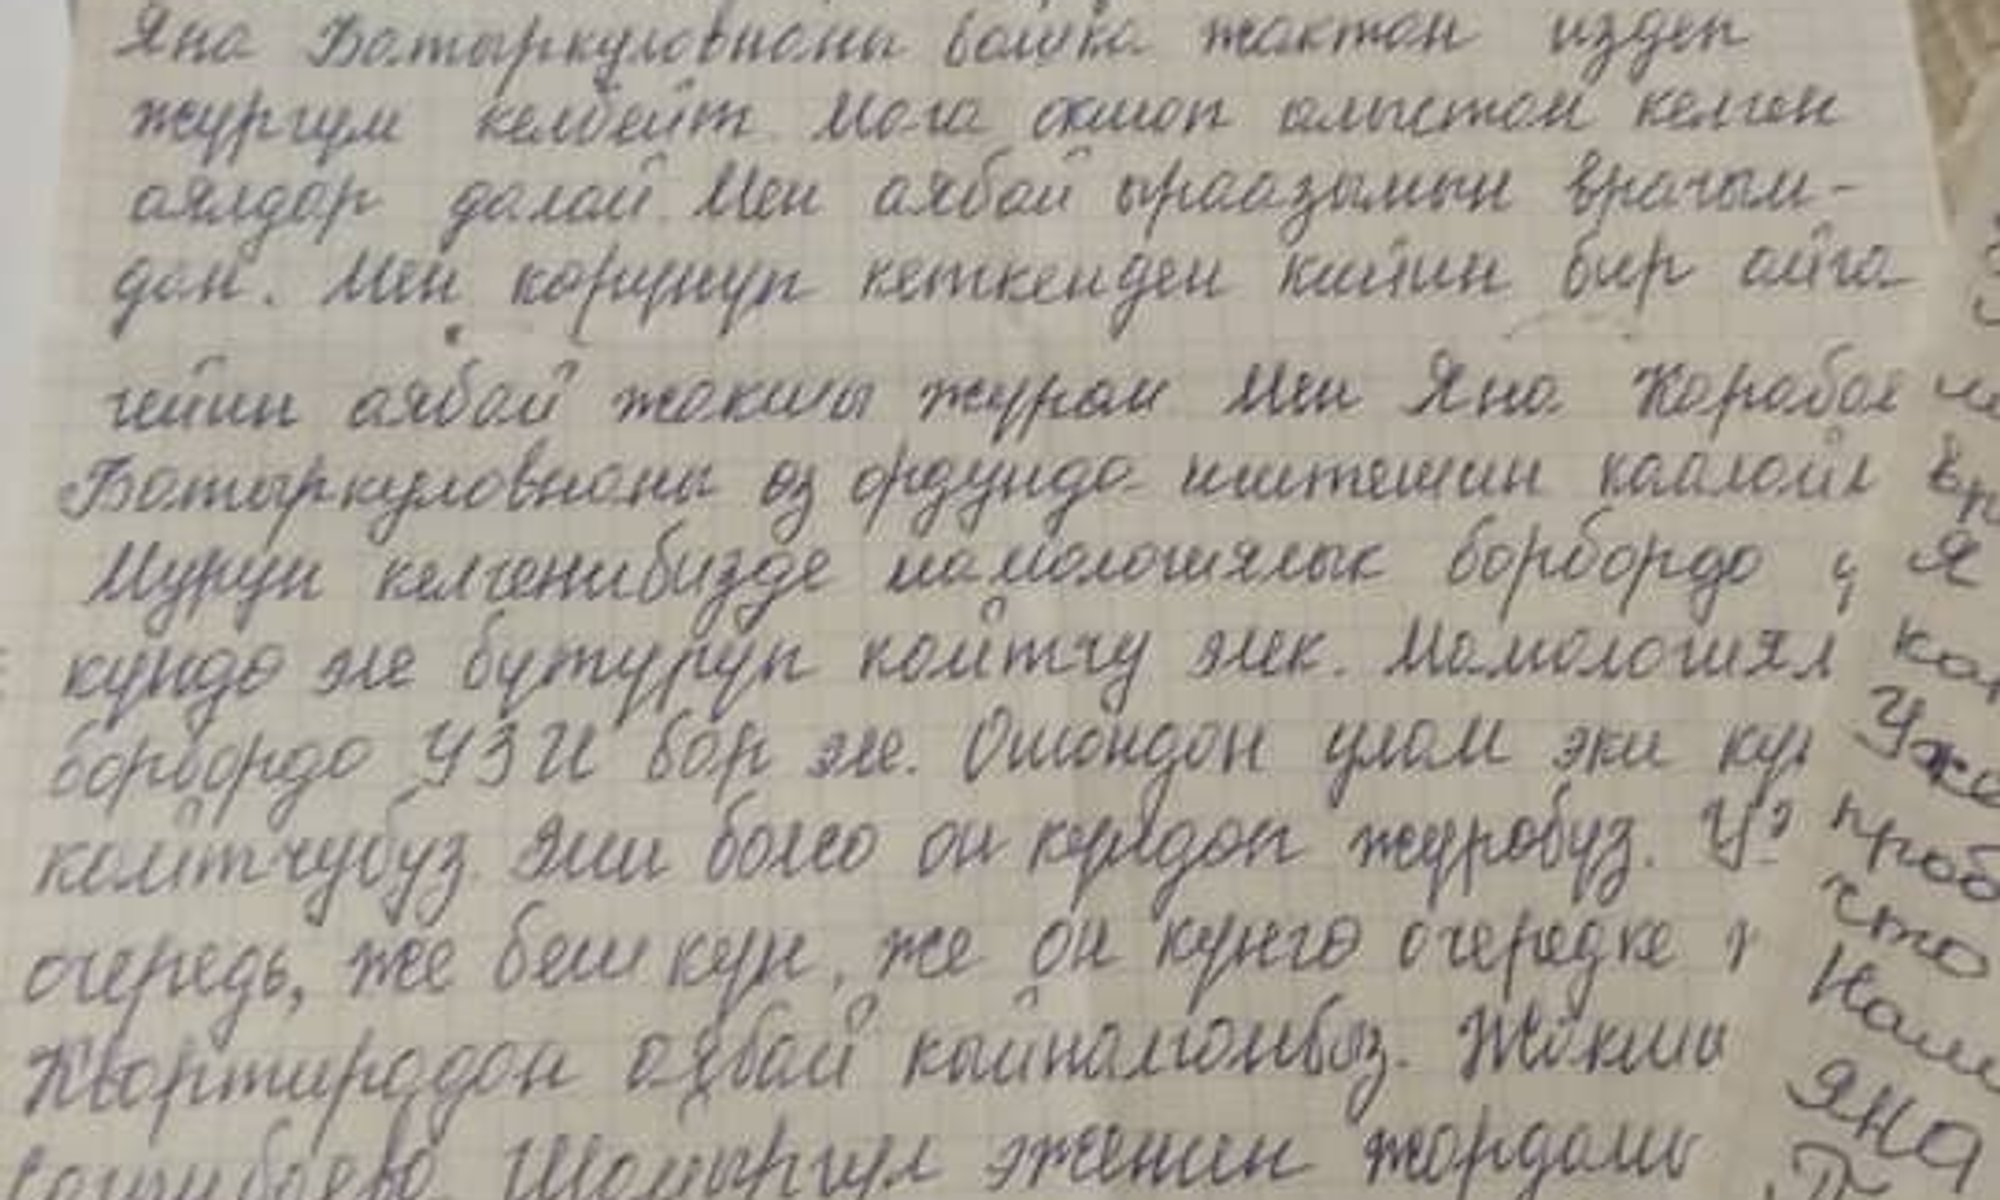 Яна Батыркуловнаны башка жактан издеп
жургум келбейт. Мага окшоп алыстан келген
аялдар далай. Мен аябай ыраазымын врачым-
дан. Мен корунуп кеткенден кийин бир айга
чейин аябай жакшы журам. Мен Яна Карабае
Батыркуловнаны оз ордунда иштешин каалай
Мурун келгенибизде маммологиялык борбордо
кундо эле бутуруп койтчу элек. Мамологиял
борбордо УЗИ бар эле. Ошондон улам эки кун
кайтчубуз. Эми болсо он кундоп журобуз. УЗ
очередь, же беш кун, же он кунго очередке
Квартирадан аябай кыйналганбыз. Жакшы
Шамыргул эженин жардамы
Вр
Я
кон
Уже
проб
что
Нам
ЯНА